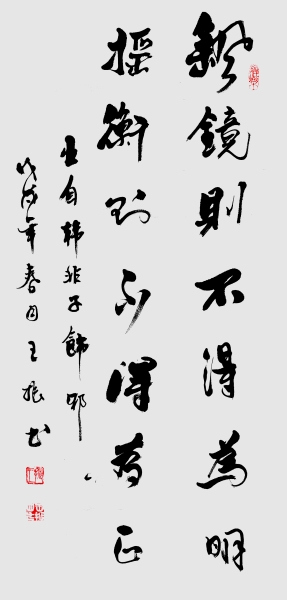 鏡則不得為明
搖衡則不得為正
出自韓非子飾邪
戊戌年春月王振书